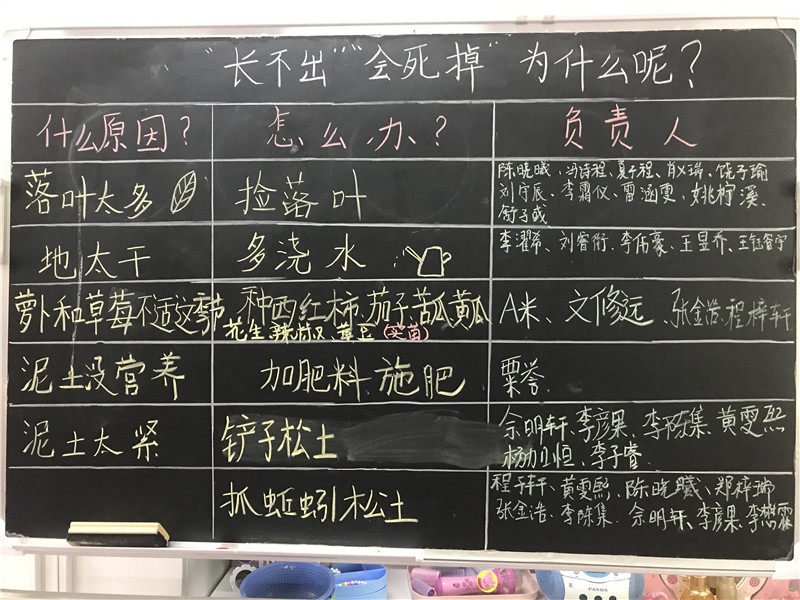 “长不出”“会死掉”为什么呢？
什么原因？ 怎么办？ 负责人
落叶太多 捡落叶
陈晓曦、冯诗程、夏子程、肖义瑞、饶子瑜
刘宇辰、李霜仪、雷涵雯、姚柠溪、
舒子彧
地太干 多浇水
李濯希、刘睿衍、李佑豪、王昱乔、
萝卜和草莓不适这季节、种西红柿、茄子、苦瓜黄瓜 A米、文修远、张金浩、程梓轩
花生、辣椒、黄豆 (买苗)
泥土没营养 加肥料、施肥 粟誉、
泥土太紧 铲子松土
佘明轩、李彦果、李陈集、黄雯熙
杨卫恒、李子睿、
抓蚯蚓松土
程子轩、黄雯熙、陈晓曦、郑梓瑞
张金浩、李陈集、佘明轩、李彦果、李懋霖
PANDA